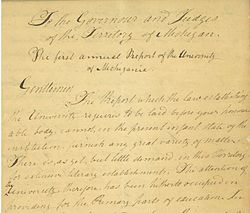 To the Governour and Judges
of the Territory of Michigan.
The first annual Report of the University
of Michigania.
Gentlemen
The Report which the law establishing
the University requires to be laid before your honour
able body, cannot, in the present infant state of the
institution, furnish any great variety of matter.
There is as yet, but little demand, in this Territory
for literary establishments. The attention of
University therefore has been hitherto occupied in
providing for the primary parts of education. In